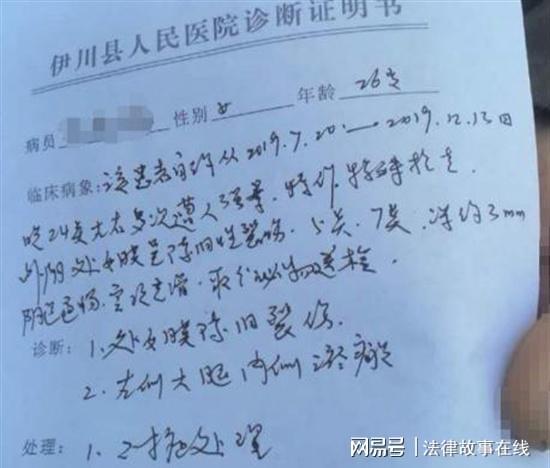 伊川县人民医院诊断证明书
病员 性别 女 年龄 26岁
临床病象:该患者自诉从2019.7.20.—2019.12.13日
晚24点左右多次遭人强暴,特作特殊检查.
外阴处女膜呈陈旧性裂伤,5点、7点,深约3mm
阴道通畅,宫颈光滑,取分泌物送检
诊断:1.处女膜陈旧裂伤.
2.左侧大腿内侧淤癍
处理:1.对症处理
网易号 | 法律故事在线